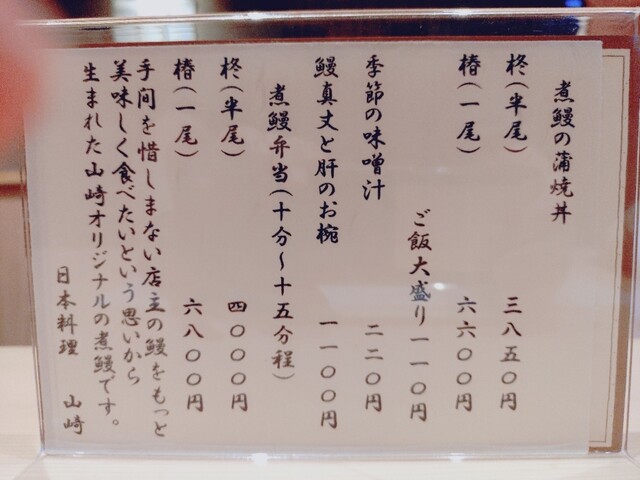 煮鰻の蒲焼丼
柊(半尾) 三八五〇円
椿(一尾) 六六〇〇円
ご飯大盛り一一〇円
季節の味噌汁 二二〇円
鰻真丈と肝のお椀 一一〇〇円
煮鰻弁当(十分〜十五分程)
柊(半尾) 四〇〇〇円
椿(一尾) 六八〇〇円
手間を惜しまない店主の鰻をもっと
美味しく食べたいという思いから
生まれた山崎オリジナルの煮鰻です。
日本料理 山崎